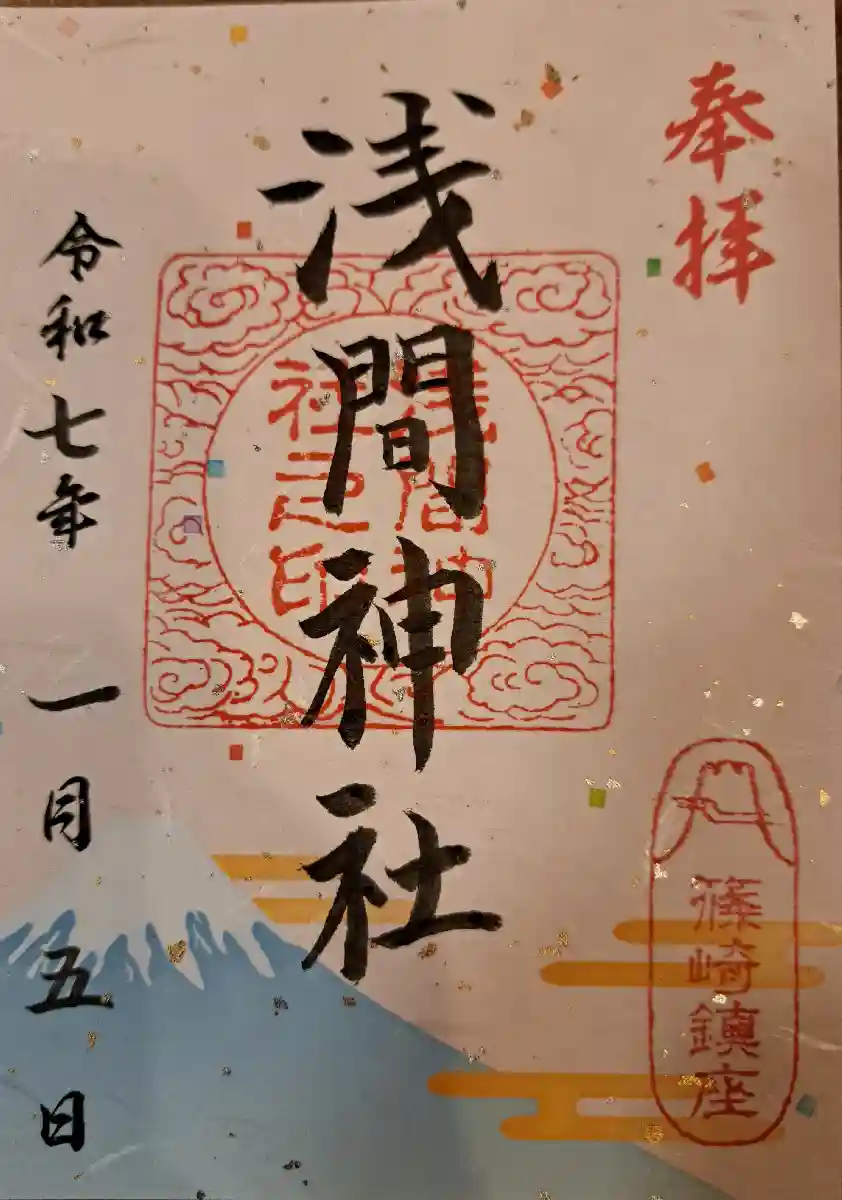 奉拝
篠崎鎮座
浅間神社
浅間神
社之印
令和七年一月五日